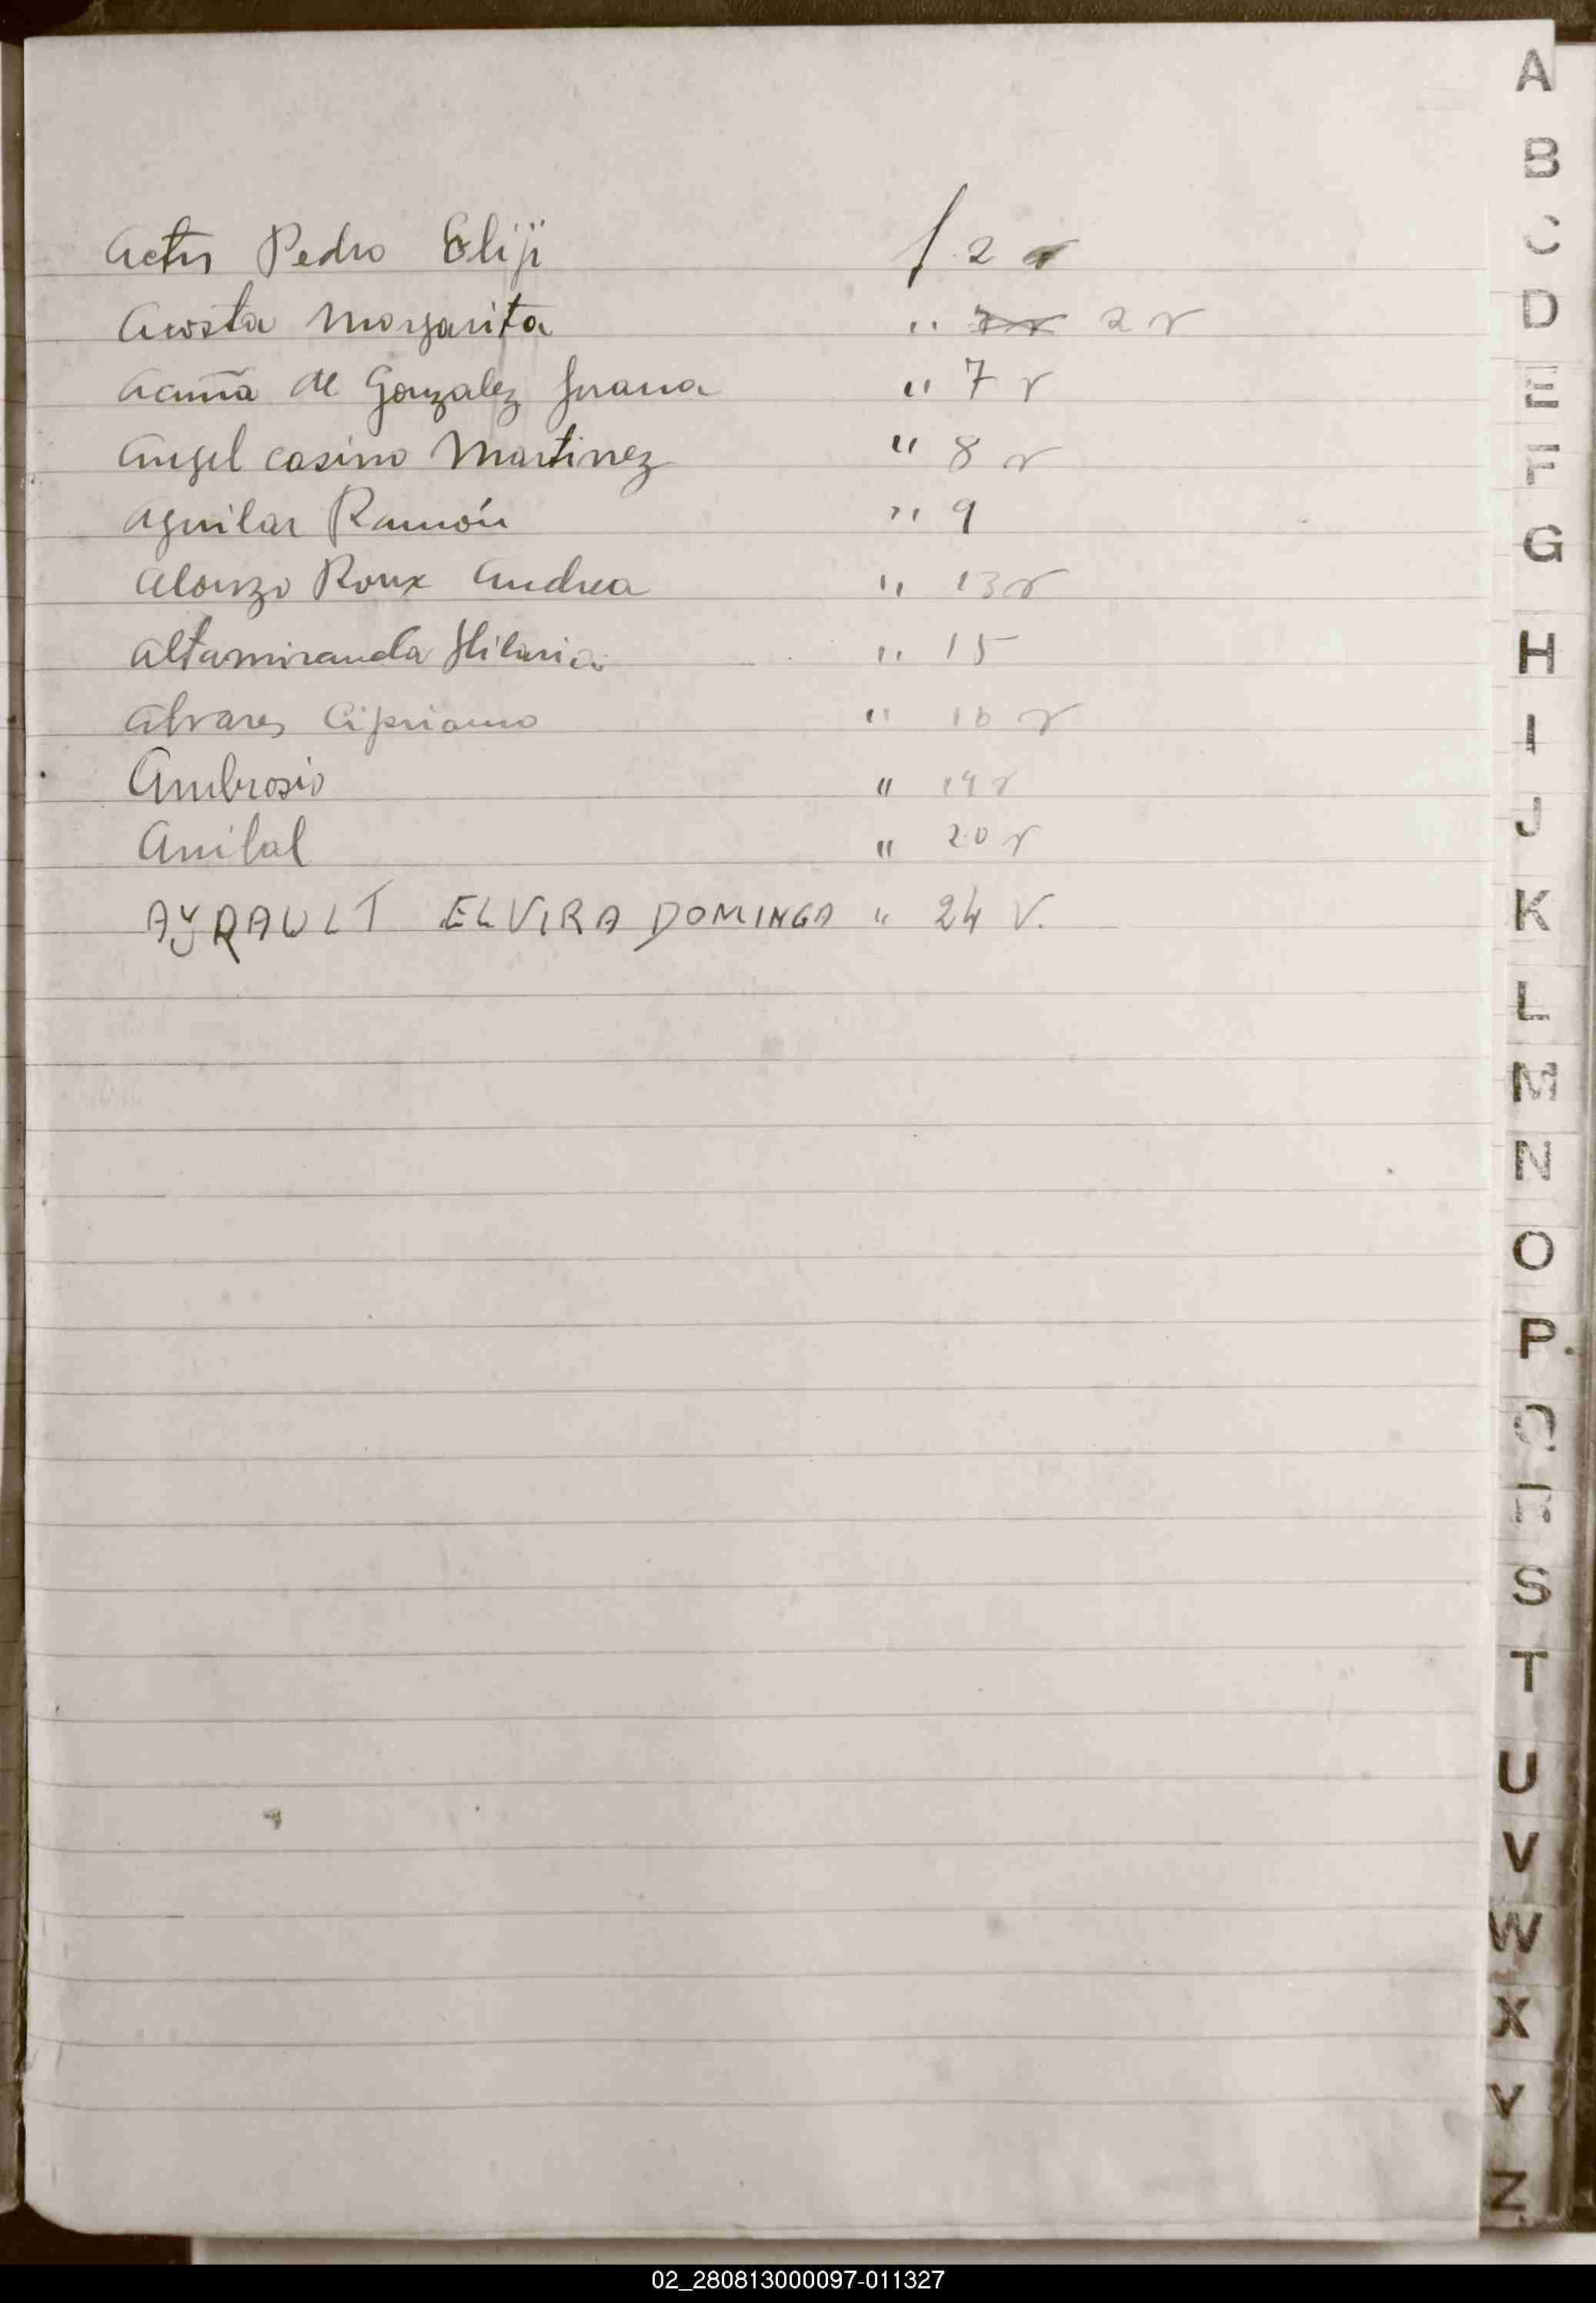 Actis Pedro Eliji f 2
Acosta Margarita " 2 v
Acuña de Gonzalez Juana " 7 v
Angel casimo Martinez " 8 v
Aguilar Ramón " 9
Alonzo Roux Andrea " 13 v
Altamiranda Hilaria " 15
Alvares Cipriano " 16 v
Ambrosio " 19 v
Anibal " 20 v
AYRAULT ELVIRA DOMINGA " 24 V.
A
B
C
D
E
F
G
H
I
J
K
L
M
N
O
P
Q
R
S
T
U
V
W
X
Y
Z
02_280813000097-011327